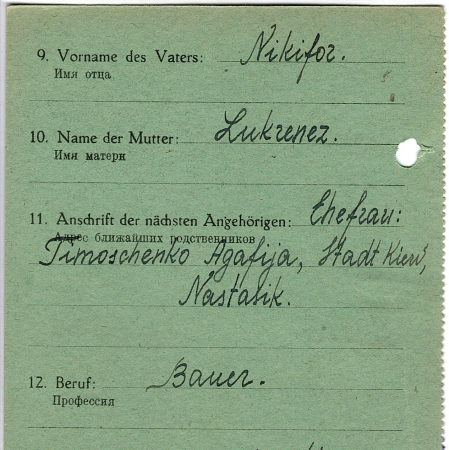 9. Vorname des Vaters: Nikifor.
Имя отца
10. Name der Mutter: Lukrenez.
Имя матери
11. Anschrift der nächsten Angehörigen: Ehefrau:
Адрес ближайших родственников
Timoschenko Agafija, Stadt Kiew,
Nastasik.
12. Beruf: Bauer.
Профессия